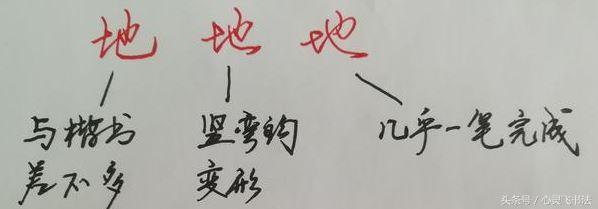 地 地 地
与楷书 竖弯钩 几乎一笔完成
差不多 变形
头条号／心灵飞书法